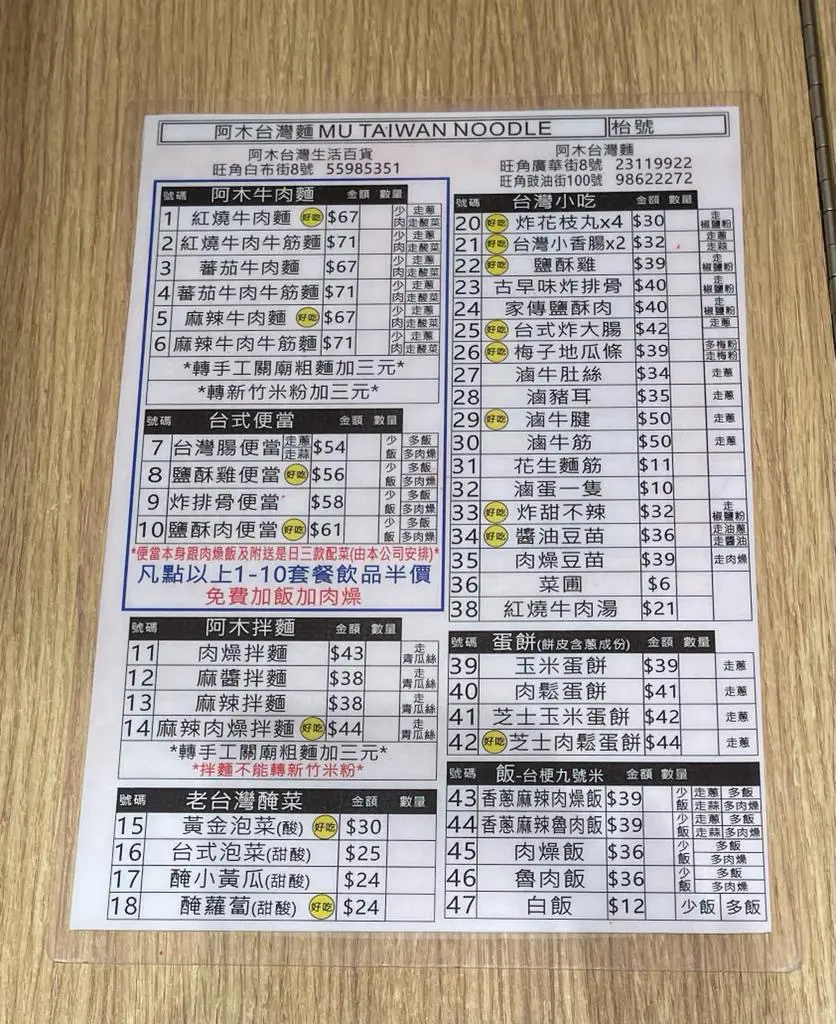 阿木台灣麵 MU TAIWAN NOODLE 枱號
阿木台灣生活百貨
旺角白布街8號 55985351
阿木台灣麵
旺角廣華街8號 23119922
旺角豉油街100號 98622272
號碼 阿木牛肉麵 金額 數量
1 紅燒牛肉麵 好吃 $67 少肉 走蔥 走酸菜
2 紅燒牛肉牛筋麵 $71 少肉 走蔥 走酸菜
3 蕃茄牛肉麵 $67 少肉 走蔥 走酸菜
4 蕃茄牛肉牛筋麵 $71 少肉 走蔥 走酸菜
5 麻辣牛肉麵 好吃 $67 少肉 走蔥 走酸菜
6 麻辣牛肉牛筋麵 $71 少肉 走蔥 走酸菜
*轉手工關廟粗麵加三元*
*轉新竹米粉加三元*
號碼 台式便當 金額 數量
7 台灣腸便當 走蔥 走蒜 $54 少飯 多飯 多肉燥
8 鹽酥雞便當 好吃 $56 少飯 多飯 多肉燥
9 炸排骨便當 $58 少飯 多飯 多肉燥
10 鹽酥肉便當 好吃 $61 少飯 多飯 多肉燥
*便當本身跟肉燥飯及附送是日三款配菜(由本公司安排)*
凡點以上1-10套餐飲品半價
免費加飯加肉燥
號碼 阿木拌麵 金額 數量
11 肉燥拌麵 $43 走青瓜絲
12 麻醬拌麵 $38 走青瓜絲
13 麻辣拌麵 $38 走青瓜絲
14 麻辣肉燥拌麵 好吃 $44 走青瓜絲
*轉手工關廟粗麵加三元*
*拌麵不能轉新竹米粉*
號碼 老台灣醃菜 金額 數量
15 黃金泡菜(酸) 好吃 $30
16 台式泡菜(甜酸) $25
17 醃小黃瓜(甜酸) $24
18 醃蘿蔔(甜酸) 好吃 $24
號碼 台灣小吃 金額 數量
20 好吃 炸花枝丸x4 $30 走椒鹽粉
21 好吃 台灣小香腸x2 $32 走蔥 走蒜
22 好吃 鹽酥雞 $39 走椒鹽粉
23 古早味炸排骨 $40 走椒鹽粉
24 家傳鹽酥肉 $40 走椒鹽粉
25 好吃 台式炸大腸 $42 走蔥
26 好吃 梅子地瓜條 $39 多梅粉 走梅粉
27 滷牛肚絲 $34 走蔥
28 滷豬耳 $35 走蔥
29 好吃 滷牛腱 $50 走蔥
30 滷牛筋 $50 走蔥
31 花生麵筋 $11
32 滷蛋一隻 $10
33 好吃 炸甜不辣 $32 走椒鹽粉
34 好吃 醬油豆苗 $36 走油蔥 走醬油
35 肉燥豆苗 $39 走肉燥
36 菜圃 $6
38 紅燒牛肉湯 $21
號碼 蛋餅(餅皮含蔥成份) 金額 數量
39 玉米蛋餅 $39 走蔥
40 肉鬆蛋餅 $41 走蔥
41 芝士玉米蛋餅 $42 走蔥
42 好吃 芝士肉鬆蛋餅 $44 走蔥
號碼 飯-台梗九號米 金額 數量
43 香蔥麻辣肉燥飯 $39 少飯 走蔥 多飯 走蒜 多肉燥
44 香蔥麻辣魯肉飯 $39 少飯 走蔥 多飯 走蒜 多肉燥
45 肉燥飯 $36 少飯 多飯 多肉燥
46 魯肉飯 $36 少飯 多飯 多肉燥
47 白飯 $12 少飯 多飯